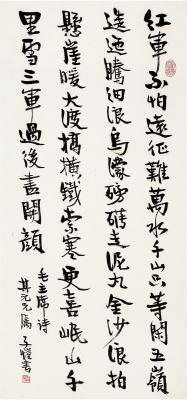 紅軍不怕遠征難萬水千山只等閑五嶺
逶迤騰細浪烏濛磅礴走泥丸金沙浪拍
懸崖暖大渡橋橫鐵索寒更喜岷山千
里雪三軍過後盡開顏
毛主席詩
子愷書